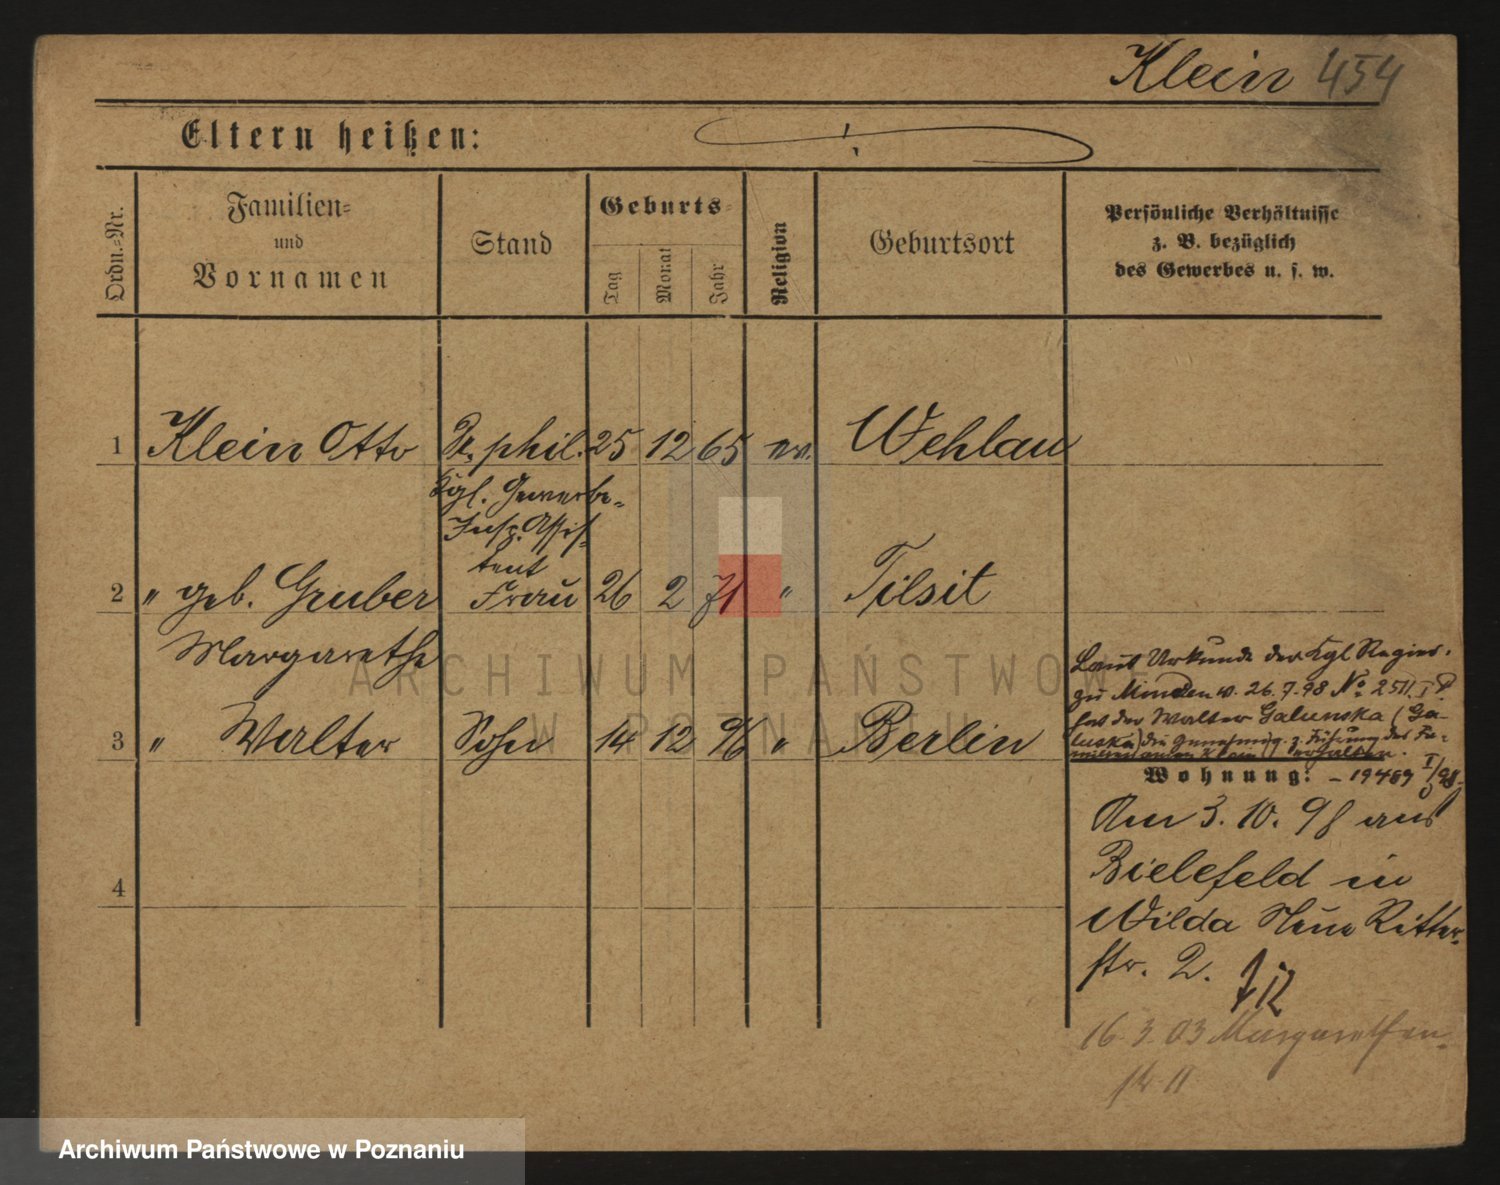 Klein 454
Eltern heißen:
Ordn.-Nr.
Familien-
und
Vornamen
Stand
Geburts-
Tag
Monat
Jahr
Religion
Geburtsort
Persönliche Verhältnisse
z. B. bezüglich
des Gewerbes u. s. w.
1 Klein Otto Dr. phil. 25 12 65 ev. Wehlau
Kgl. Gewerbe-
Insp. Assis-
tent
2 " geb. Gruber Frau 26 2 71 " Tilsit
Margarethe
3 " Walter Sohn 14 12 96 " Berlin
Laut Urkunde der Kgl Regier.
zu Minden v. 26.7.98 No. 2511. I P
hat der Walter Galunska (Ga-
luska) die Genehmig. z. Führung des Fa-
miliennamen Klein erhalten.
Wohnung: - 19469 I/98.
Am 3. 10. 98 aus
Bielefeld in
Wilda Neue Ritter-
str. 2.
4
16.3.03 Margarethen-
str 11
ARCHIWUM PAŃSTWOWE
W POZNANIU
Archiwum Państwowe w Poznaniu